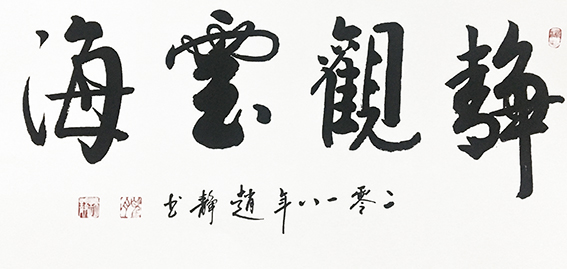 靜觀雲海
二零一八年趙靜书